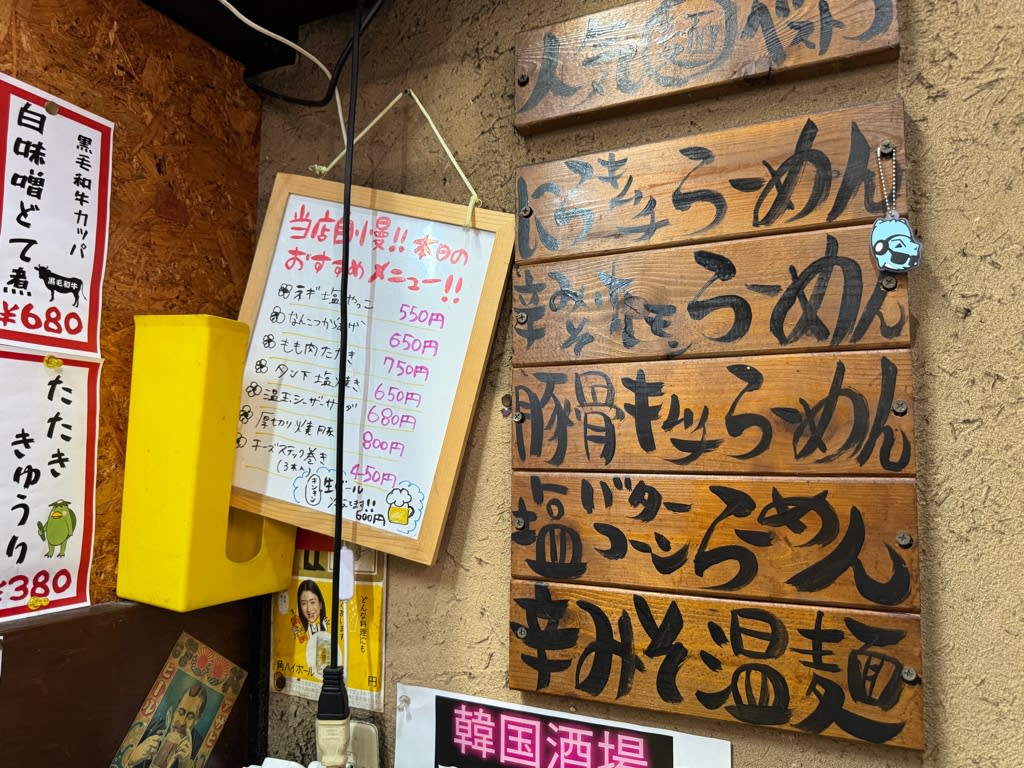 黒毛和牛カッパ
白味噌どて煮
黒毛和牛
¥680
たたき
きゅうり
¥380
当店自慢!! 本日の
おすすめメニュー!!
ネギ塩やっこ 550円
なんこつからあげ 650円
もも肉たたき 750円
タン下塩焼き 650円
温玉シーザーサラダ 680円
厚切り焼豚 800円
チーズスティック巻き
(3本入) 450円
キンキン
生ビール
600円
どんな料理にも
角ハイボール
円
人気麺ベスト5
にらキムチらーめん
辛みそホルモンらーめん
豚骨キムチらーめん
塩バターコーンらーめん
辛みそ温麺
韓国酒場